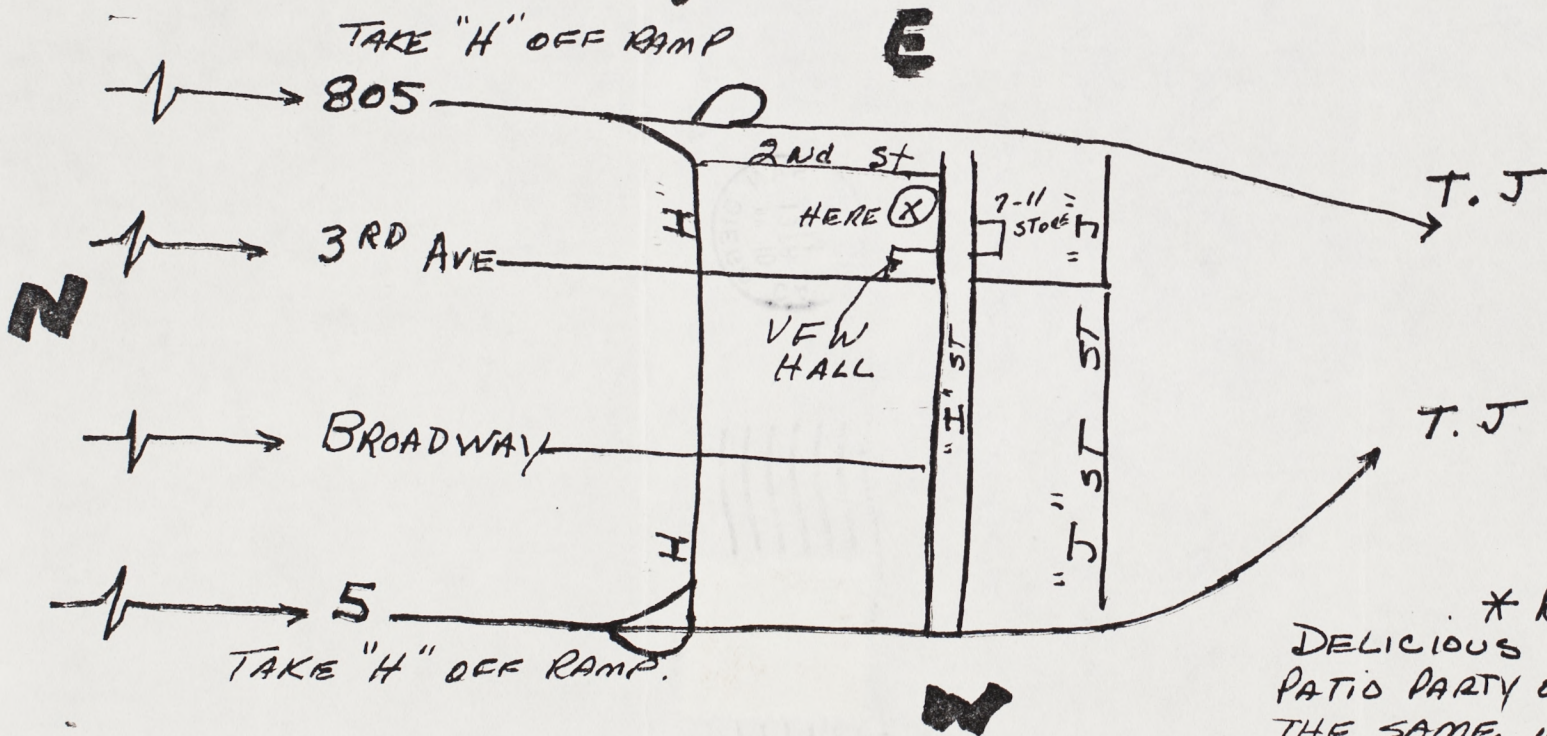 TAKE "H" OFF RAMP
E
805
2Nd St
T. J
"H"
HERE X
7-11
STORE
"J"
3RD AVE
N
VFW
HALL
"I" ST
"J" ST ST
BROADWAY
T. J
H
5
TAKE "H" OFF RAMP.
W
*
DELICIOUS
PATIO PARTY
THE SAME